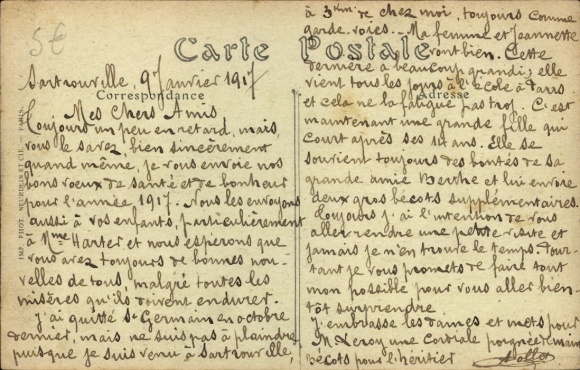 5€
Carte Postale
Correspondance
Adresse
IMP PHOT NEURDEIN ET CIE. _ PARIS
Sartrouville, 9 Janvier 1917
Mes Chers Amis
Toujours un peu en retard, mais,
vous le savez, bien sincèrement
quand même, je vous envoie nos
bons vœux de santé et de bonheur
pour l'année 1917. Nous les envoyons
aussi à vos enfants, particulièrement
à Mme Harter et nous espérons que
vous avez toujours de bonnes nou-
velles de tous, malgré toutes les
misères qu'ils doivent endurer.
J'ai quitté St Germain en octobre
dernier, mais ne suis pas à plaindre
puisque je suis venu à Sartrouville,
à 3km. de chez moi, toujours comme
garde-voies._ Ma femme et Jeannette
vont bien. Cette
dernière a beaucoup grandi; elle
vient tous les jours à l'école à Paris
et cela ne la fatigue pas trop. C'est
maintenant une grande fille qui
court après ses 14 ans. Elle se
souvient toujours des bontés de sa
grande amie Berthe et lui envoie
deux gros bécots supplémentaires.
Toujours j'ai l'intention de vous
aller rendre une petite visite et
jamais je n'en trouve le temps. Pour-
tant je vous promets de faire tout
mon possible pour vous aller bien-
tôt surprendre
J'embrasse les dames et mets pour
M Xeroy une cordiale poignée de main
Bécots pour l'héritier